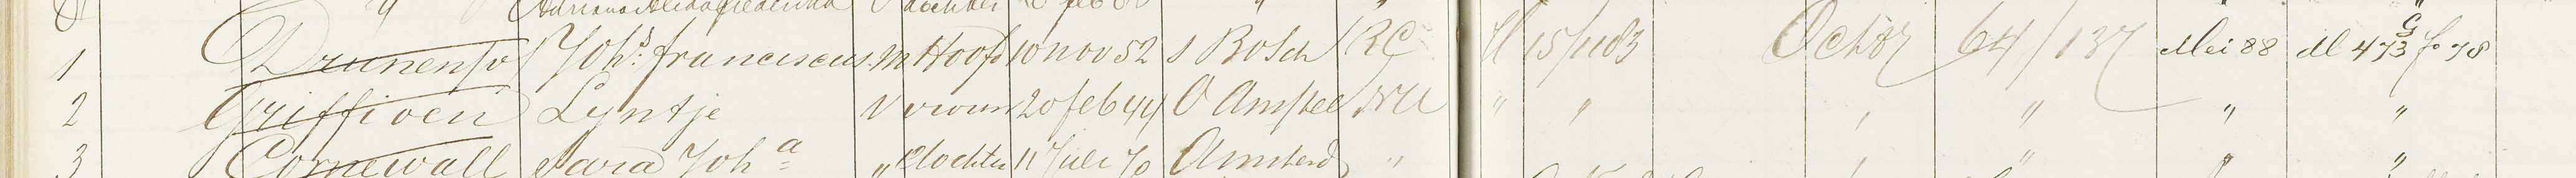 1 Drunen v Johs. franciscus m Hoofd 10 nov 52 s Bosch RC 15/11 83 Octbr 64/137 Mei 88 dl 473 G fo 78
2 Griffioen Lyntje v vrouw 20 feb 44 O Amstel NH " " " " " "
3 Cornewall Sara Joha " dochter 11 Juli 70 Amsterd " " " " "